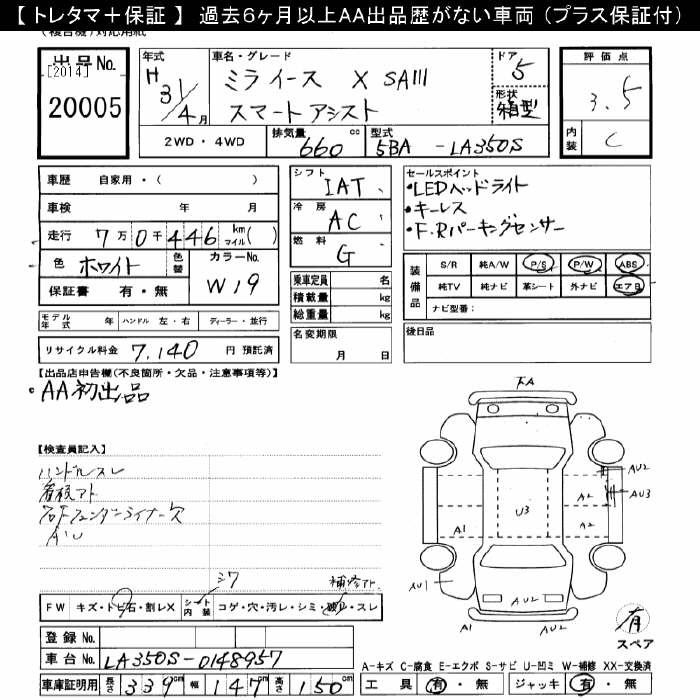 【 トレタマ＋保証 】 過去6ヶ月以上AA出品歴がない車両 (プラス保証付)
(複合機)対応用紙
出品No.
[2014]
20005
年式 H 31/4月
車名・グレード
ミライース X SAⅢ
スマートアシスト
ドア 5
形状 箱型
評価点
3.5
内装 C
2WD・4WD
排気量 660 cc
型式 5BA - LA350S
車歴 自家用・( )
車検 年 月
走行 7万0千446 km マイル( )
色 ホワイト 色替
カラーNo. W19
保証書 有・無
モデル年式 年 ハンドル 左・右 ディーラー・並行
リサイクル料金 7,140 円 預託済
シフト IAT
冷房 AC
燃料 G
乗車定員 名
積載量 kg
総重量 kg
名変期限 月 日
セールスポイント
・LEDヘッドライト
・キーレス
・F.Rパーキングセンサー
装備品
S/R 純A/W P/S P/W ABS
純TV 純ナビ 革シート 外ナビ エアB
ナビ型番：
後日品
【出品店申告欄(不良箇所・欠品・注意事項等)】
・AA初出品
【検査員記入】
ハンドルスレ
看板アト
右Fフェンダーライナー欠
AU
シワ
補修アト
FW キズ・トビ石・割レX シート内装 コゲ・穴・汚レ・シミ・破レ・スレ
登録No.
車台No. LA350S-0148957
車庫証明用 長さ 339cm 幅 147cm 高さ 150cm
下A
AU2
AU3
A2
U3
A1
A2
AU1
AU2
AU2
A1
A1
有
スペア
A-キズ C-腐食 E-エクボ S-サビ U-凹ミ W-補修 XX-交換済
工具 有・無 ジャッキ 有・無